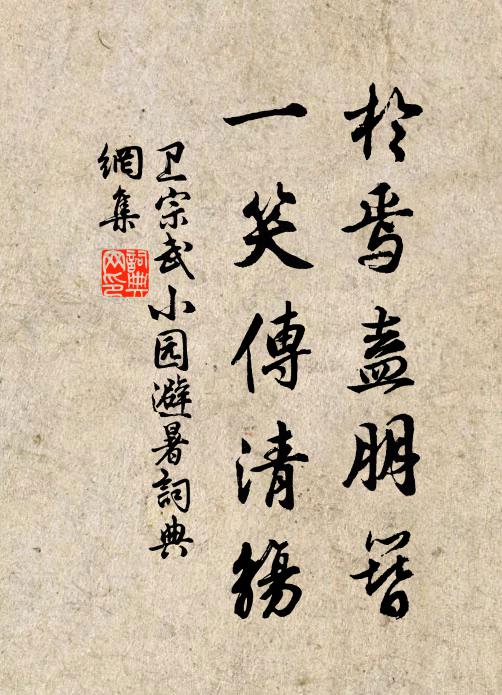 於焉盍朋簪
一笑傳清觴
卫宗武小园避暑詞典
網集
詞典
网印